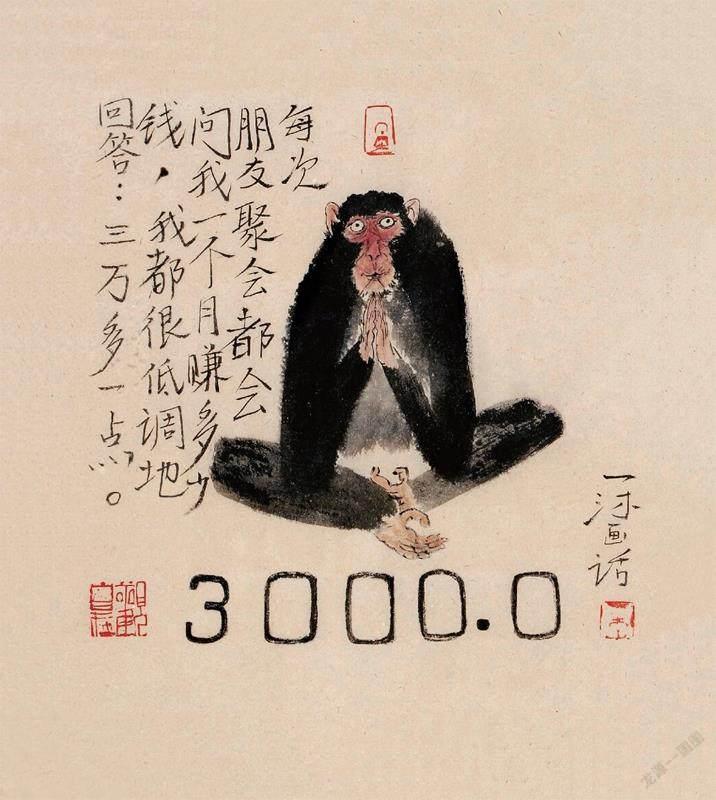 每次
朋友聚会都会
问我一个月赚多少
钱，我都很低调地
回答：三万多一点。
3000.0
画话